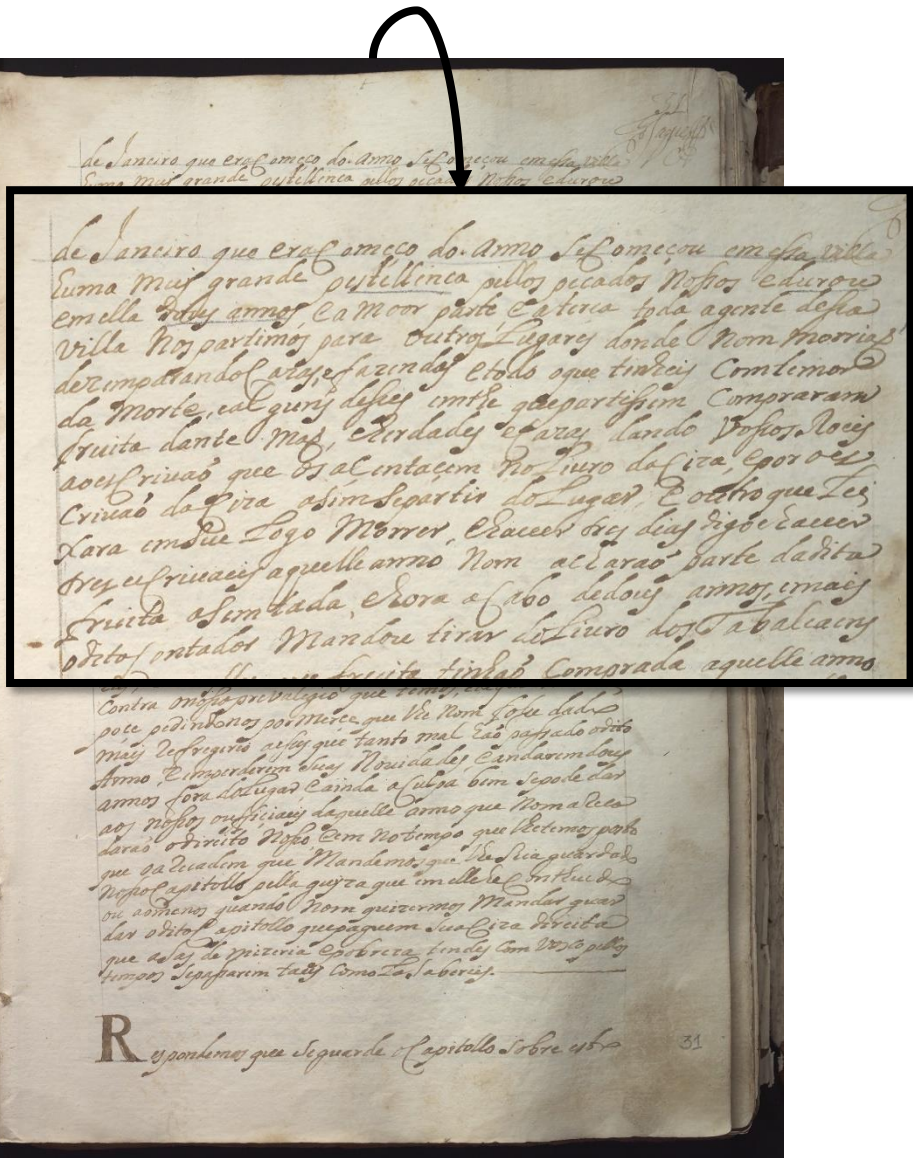 31
de Janeiro que era Comeco do Anno se Comecou em essa villa
huma mui grande pestellenca pellos pecados Nossos e durou
de Janeiro que era Comeco do Anno se Comecou em essa villa
huma mui grande pestellenca pellos pecados Nossos e durou
em ella dous annos, e a moor parte, e a terca toda agente desta
villa Nos partimos para outros Lugares donde Nom morriaõ
dezemparando Cazas, e fazendas e todo o que tinheis Com temor
da Morte, e alguns desses em the que partissem Compraram
fruita dante Maõ, e herdades e Cazas dando Vossos Roeis
ao esCrivaõ que os aCentaçem no Livro da Ciza, e por o es
Crivaõ da Ciza asim se partir do Lugar, e outro que Lei
xara em Seu Logo Morrer, e haver tres dias digo e haver
tres esCrivaeis aquelle anno Nom acharaõ parte da dita
fruita asentada, e hora aCabo de dous annos, e mais
o dito Contador Mandou tirar do Livro dos Tabaleaens
fruita tinhaõ Comprada aquelle anno
Contra o nosso previlegio que temos,
poce pedindonos por merce que lhe Nom fosse dado
mais Refregerio a esses que tanto mal haõ passado o dito
Anno, e emperderem suas Novidades e andarem dous
annos fora do Lugar, e ainda a Culpa bem se pode dar
aos Nossos oufficiaeis daquelle anno que Nom a Reca
daraõ o direito Nosso, e em no tempo que lhe temos posto
que os Recadem que Mandemos que lhe seia guardado
Nosso Capitollo pella guiza que em elle he Contheudo
ou ao menos quando Nom quizermos Mandar guar
dar o dito Capitollo que paguem sua Ciza direita
que asas de mizeria e pobreza tendes Com Vosco pellos
tempos se passarem taeis Como Ja Sabereis.
Respondemos que se guarde o Capitollo sobre esto
31